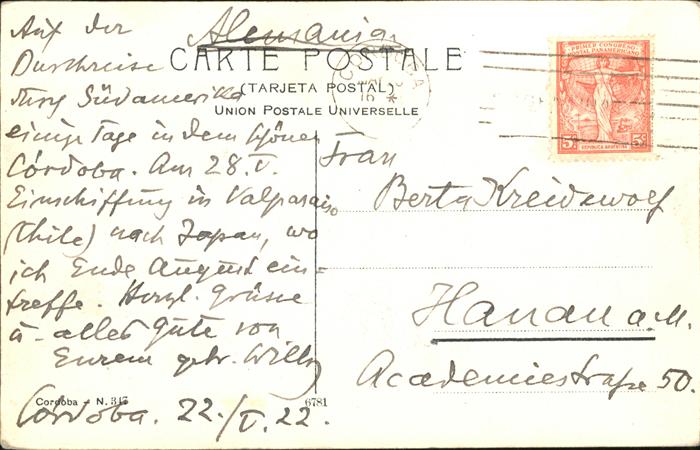 Alemania
CARTE POSTALE
(TARJETA POSTAL)
UNION POSTALE UNIVERSELLE
PRIMER CONGRESO
POSTAL PANAMERICANO
5c 5c
REPUBLICA ARGENTINA
CORDOBA
Auf der
Durchreise
durch Südamerika
einige Tage in dem schönen
Córdoba. Am 28. V.
Einschiffung in Valparaiso
(Chile) nach Japan, wo
ich Ende August ein-
treffe. Herzl. Grüsse
u. alles Gute von
Eurem getr. Willy
Córdoba. 22./V. 22.
Cordoba - N. 347
6781
Frau
Berta Kreidewolf
Hanau a. M.
Academiestraße 50.